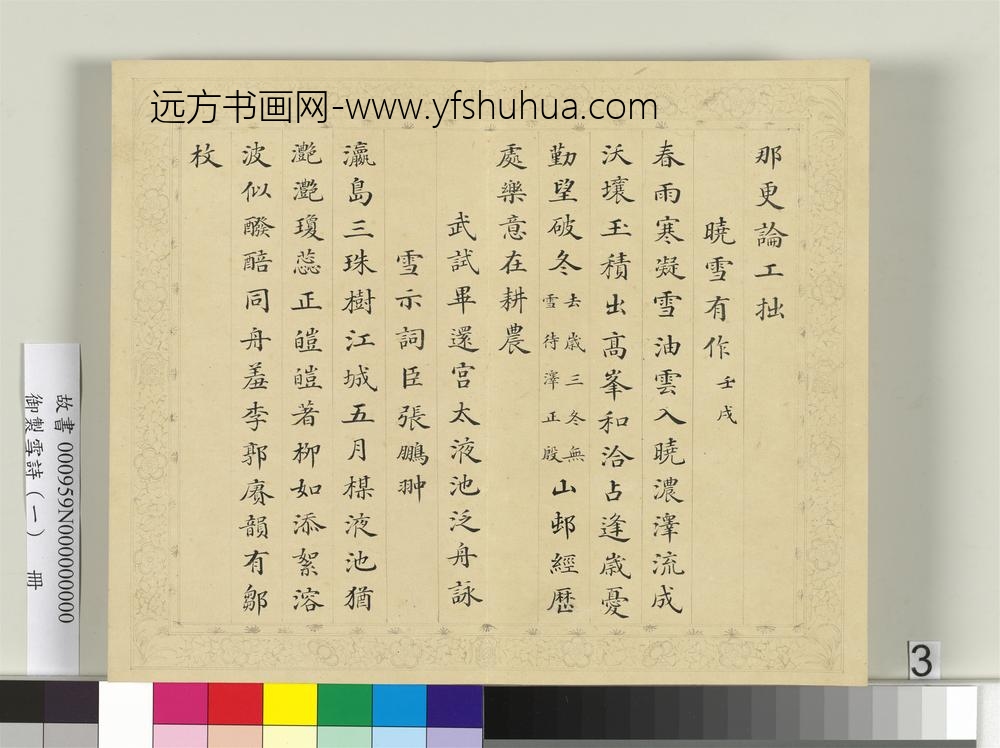 远方书画网-www.yfshuhua.com
那更論工拙
曉雪有作 壬戌
春雨寒凝雪油雲入曉濃澤流成
沃壤玉積出髙峯和洽占逢嵗憂
勤望破冬去嵗三冬無雪待澤正殷山邨經歷
處樂意在耕農
武試畢還宮太液池泛舟詠
雪示詞臣張鵬翀
瀛島三珠樹江城五月楳液池猶
灔灔瓊蕊正皚皚著柳如添絮溶
波似醱醅同舟羞李郭賡韻有鄒
枚
故書 000959N000000000
御製雪詩(一) 冊
3